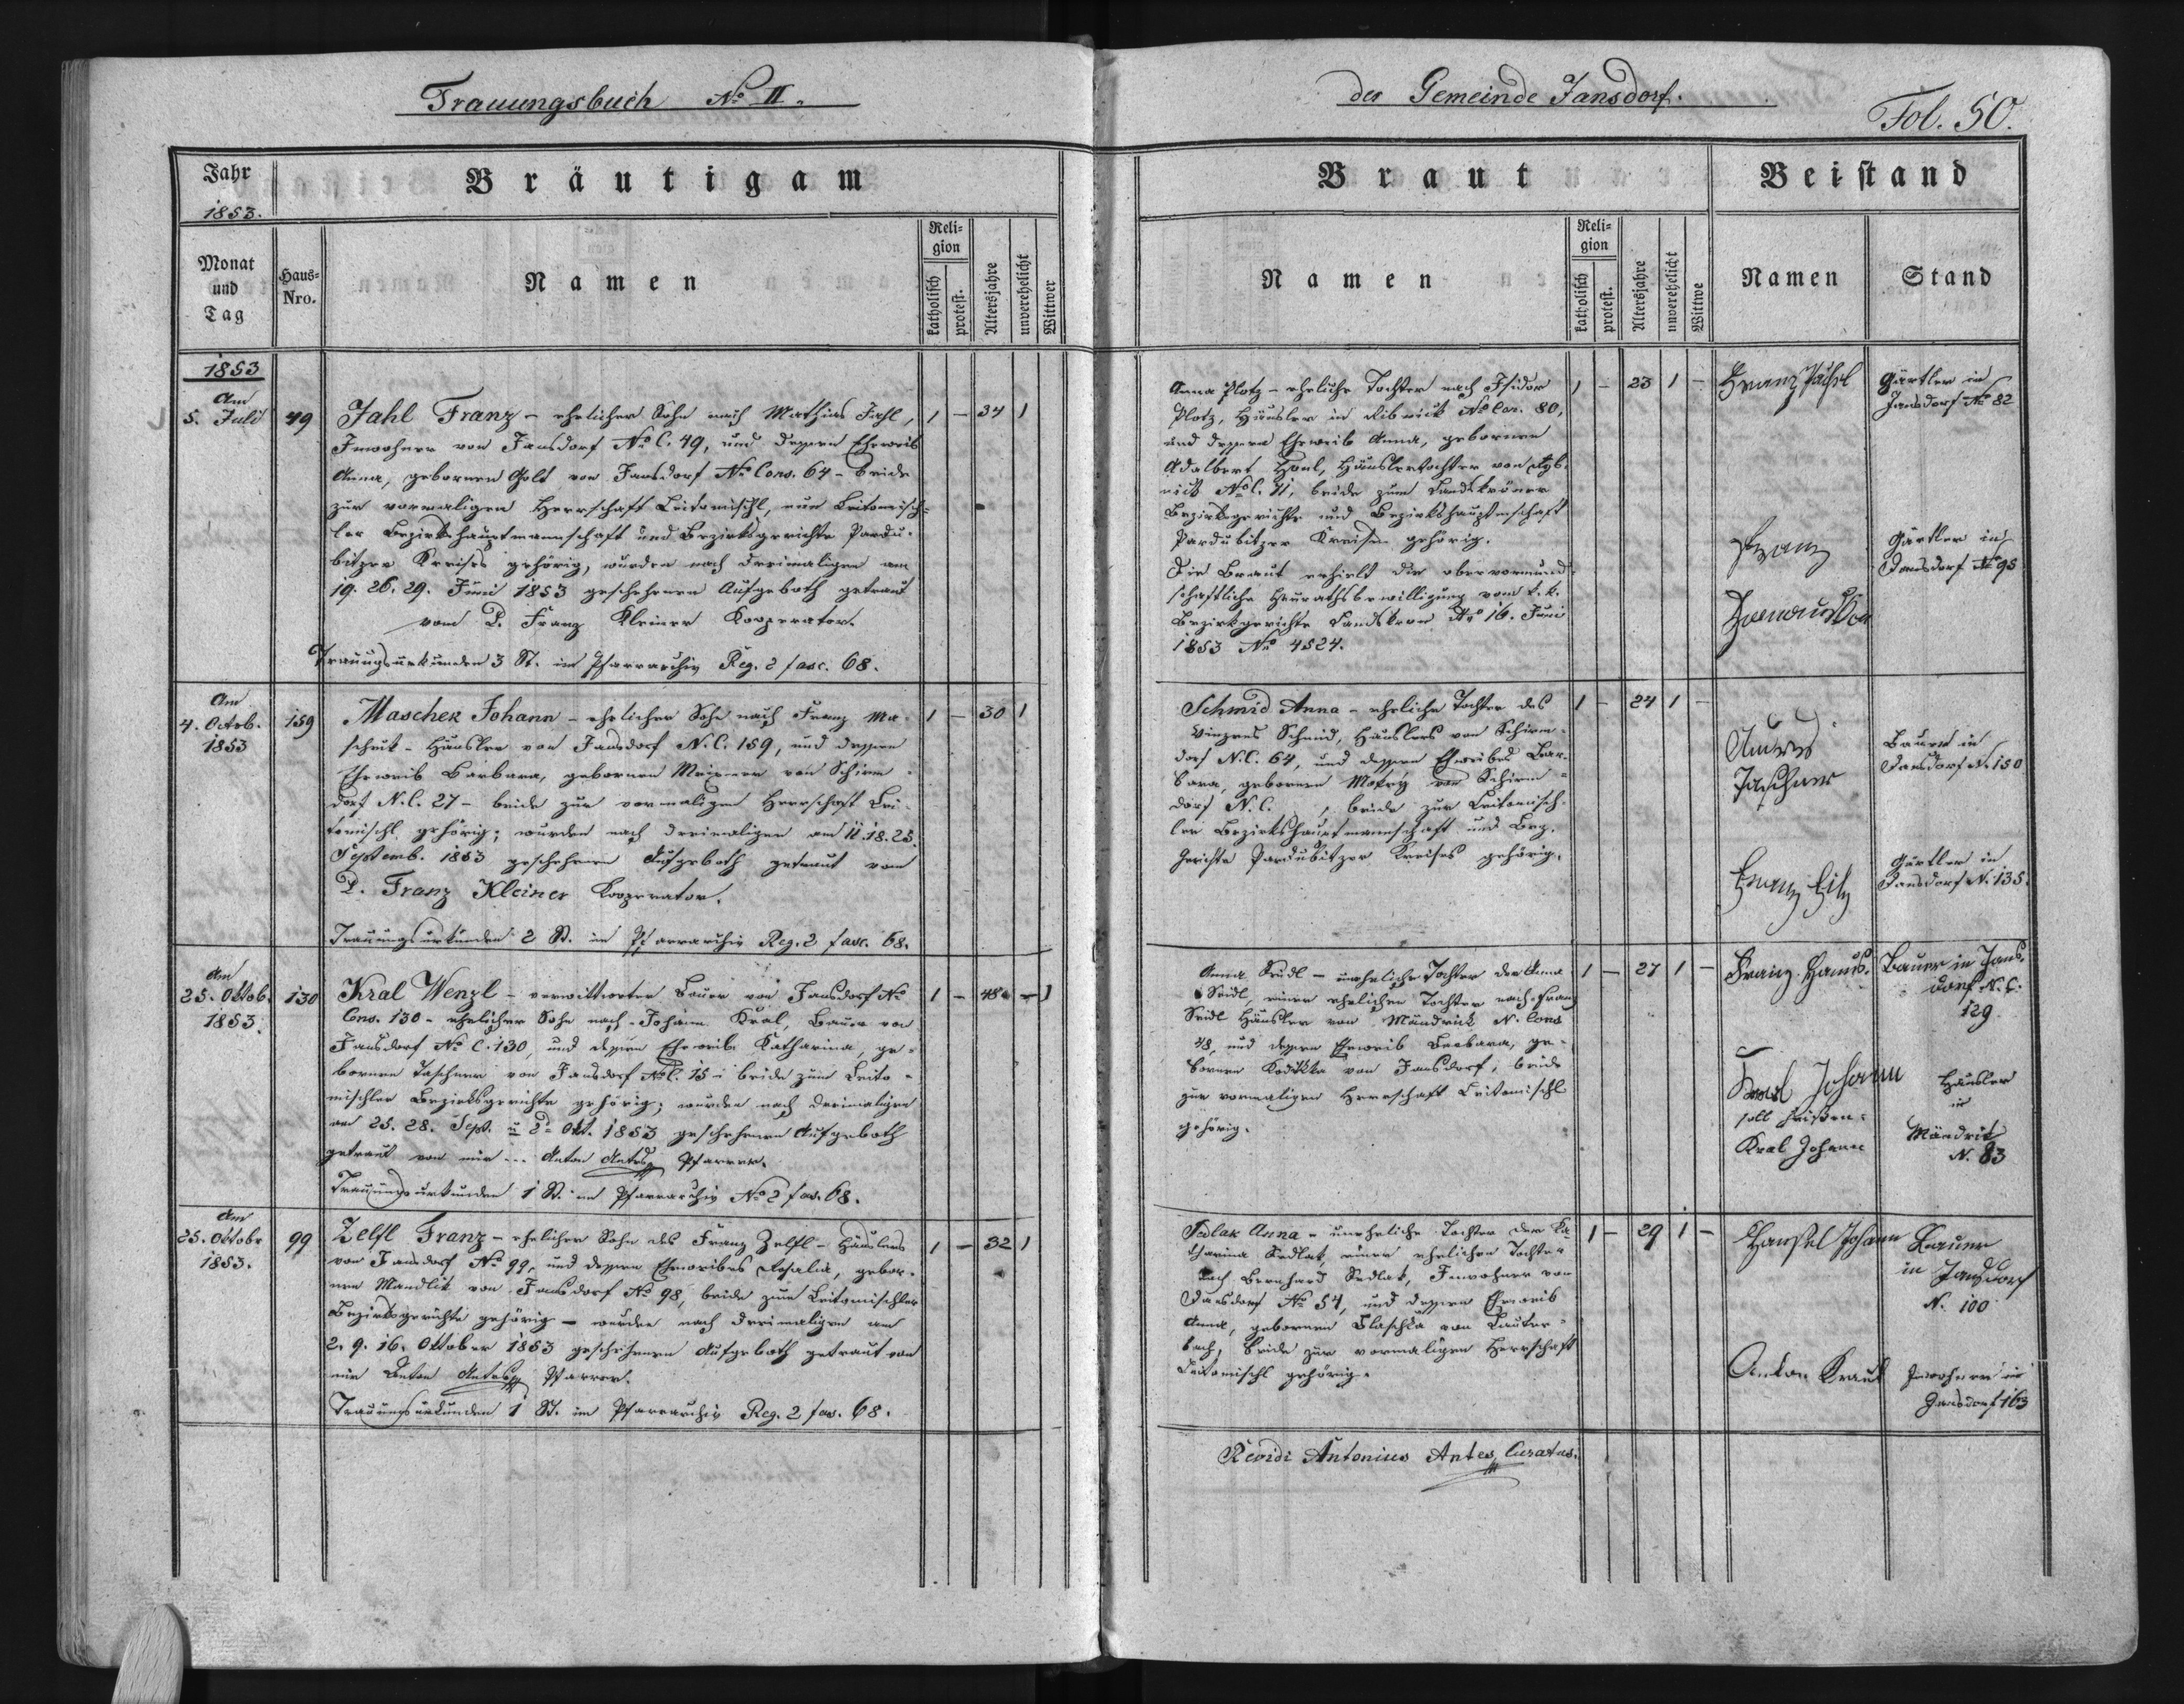 Trauungsbuch No II.
der Gemeinde Jansdorf.
Fol. 50.
Jahr
1853.
Bräutigam
Monat
und
Tag
Haus-
Nro.
Namen
Reli-
gion
katholisch
protest.
Altersjahre
unverehelicht
Wittwer
Braut
Beistand
Namen
Reli-
gion
katholisch
protest.
Altersjahre
unverehelicht
Wittwe
Namen
Stand
1853
Am
5. Juli
49
Jahl Franz – ehelicher Sohn nach Mathias Jahl,
Inwohner von Jansdorf No C. 49, und dessen Eheweib
Anna, gebornen von Jansdorf No Cons. 64 – beide
zur vormaligen Herrschaft Leitomischl, nun Leitomisch-
ler Bezirkshauptmannschaft und Bezirksgerichte Pardu-
bitzer Kreises gehörig, wurden nach dreimaligen am
19. 26. 29. Juni 1853 geschehenen Aufgeboth getraut
vom P. Franz Kleiner Kooperator.
Trauungsurkunden 3 St. im Pfarrarchiv Reg. 2 fasc. 68.
1 – 34 1
Anna Plotz – eheliche Tochter nach Isidor
Plotz, Häusler in Ribnick No Con. 80,
und dessen Eheweib Anna, gebornen
Adalbert Häuslerstochter von Ryb-
nick No C. 11, beide zum Landskroner
Bezirksgerichte und Bezirkshauptmschaft
Pardubitzer Kreises gehörig.
Die Braut erhielt die obervormund-
schaftliche Heurathsbewilligung vom k. k.
Bezirksgerichte Landskron 16. Juni
1853 No 4524.
1 – 23 1 –
Franz
Gärtler in
Jansdorf No 82
Franz
Gärtler in
Jansdorf No 95
Am
4. Octob.
1853
159
Maschek Johann – ehelicher Sohn nach Franz Ma-
schek – Häusler von Jansdorf N. C. 159, und dessen
Eheweib Barbara, gebornen von Schirm-
dorf N. C. 27 – beide zur vormaligen Herrschaft Lei-
tomischl gehörig; wurden nach dreimaligen am 11. 18. 25.
Septemb. 1853 geschehenen Aufgeboth getraut vom
P. Franz Kleiner Kooperator.
Trauungsurkunden 2 St. im Pfarrarchiv Reg. 2 fasc. 68.
1 – 30 1
Schmid Anna – eheliche Tochter des
Vinzens Schmid, Häuslers von Schirm-
dorf N. C. 64, und dessen Eheweibes Bar-
bara, gebornen Mokry von Schirm-
dorf N. C. , beide zur Leitomisch-
ler Bezirkshauptmannschaft und Bez.
Gerichte Pardubitzer Kreises gehörig.
1 – 24 1 –
Taschner
Bauer in
Jansdorf N. 150
Franz
Gärtler in
Jansdorf N. 135.
Am
25. Oktob.
1853.
130
Kral Wenzl – verwittweter Bauer von Jansdorf No
Cons. 130 – ehelicher Sohn nach Johann Kral, Bauer von
Jansdorf No C. 130, und dessen Eheweib Katharina, ge-
bornen Taschner von Jansdorf No C. 15 – beide zum Leito-
mischler Bezirksgerichte gehörig; wurden nach dreimaligen
am 25. 28. Sept. u 2. Okt. 1853 geschehenen Aufgeboth
getraut von mir ... Anton Antes Pfarrer.
Trauungsurkunden 1 St. im Pfarrarchiv No 2 fas. 68.
1 – 48 – 1
Anna Seidl – uneheliche Tochter der Anna
Seidl, einer ehelichen Tochter nach Franz
Seidl Häusler von Mändrik N. Cons
48, und dessen Eheweib Barbara, ge-
bornen von Jansdorf, beide
zur vormaligen Herrschaft Leitomischl
gehörig.
1 – 27 1 –
Franz Hanus.
Bauer in Jans-
dorf N. C.
129.
Johann
soll heißen:
Kral Johann
Häusler
in
Mändrik
N. 83
Am
25. Oktobr
1853.
99
Zelfl Franz – ehelicher Sohn des Franz Zelfl – Häuslers
von Jansdorf No 99, und dessen Eheweibes Rosalia, gebor-
nen Mandlik von Jansdorf No 98, beide zum Leitomischler
Bezirksgerichte gehörig – wurden nach dreimaligen am
2. 9. 16. Oktober 1853 geschehenen Aufgeboth getraut von
mir Anton Antes Pfarrer.
Trauungsurkunden 1 St. im Pfarrarchiv Reg. 2 fas. 68.
1 – 32 1
Sedlak Anna – uneheliche Tochter der Ka-
tharina Sedlak, einer ehelichen Tochter
nach Bernhard Sedlak, Inwohner von
Jansdorf No 54, und dessen Eheweib
Anna, gebornen Blaschka von Lauter-
bach, beide zur vormaligen Herrschaft
Leitomischl gehörig.
1 – 29 1 –
Johann
Bauer
in Jansdorf
N. 100
Anton Kraus
Inwohner in
Jansdorf 163
Revidi Antonius Antes Curatus.